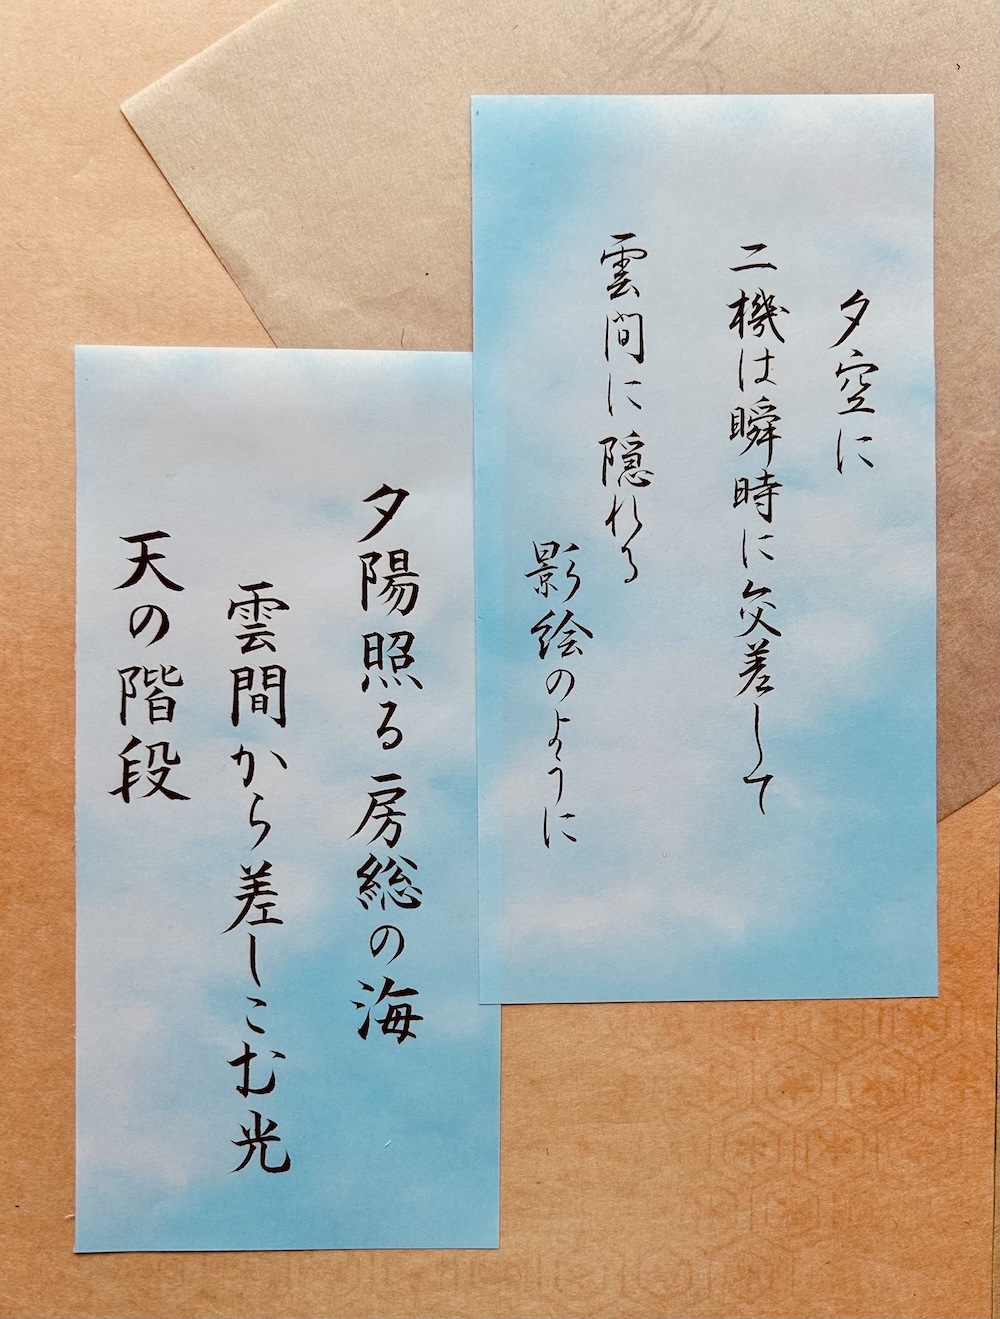 夕空に
二機は瞬時に交差して
雲間に隠れる
影絵のように
夕陽照る房総の海
雲間から差しこむ光
天の階段